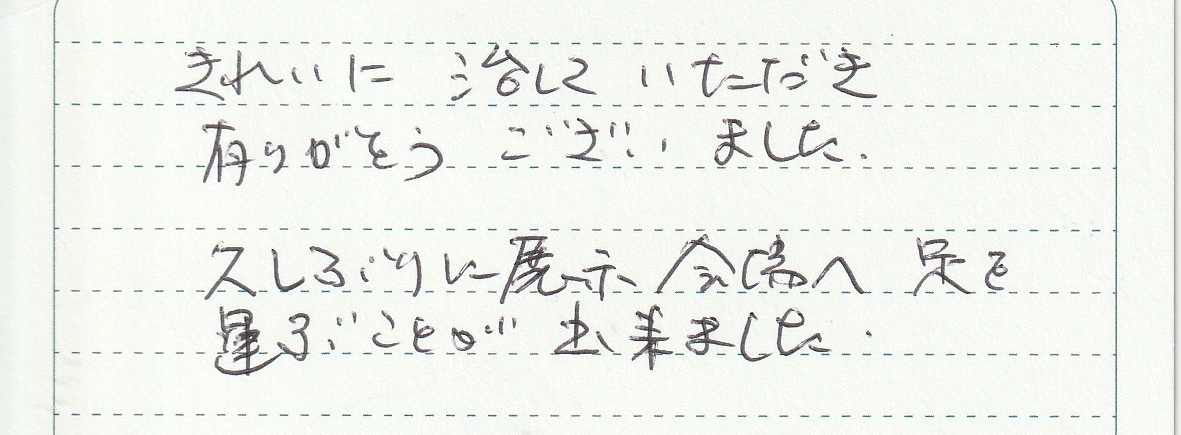 きれいに 治して いただき
有りがとう ございました.
久しぶりに展示会場へ 足を
運ぶことが 出来ました.